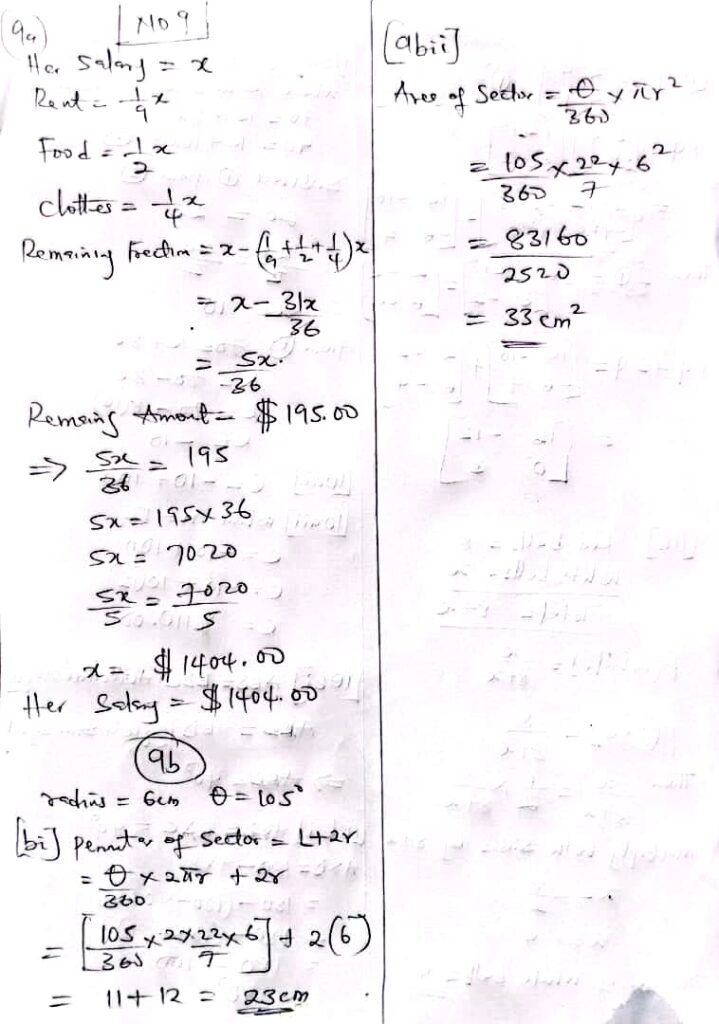 9a) No 9
Her Salary = x
Rent = 1/9 x
Food = 1/2 x
clothes = 1/4 x
Remaining fraction = x - (1/9 + 1/2 + 1/4)x
= x - 31x/36
= 5x/36
Remaing Amount = $195.00
⇒ 5x/36 = 195
5x = 195 x 36
5x = 7020
5x/5 = 7020/5
x = $1404.00
Her Salary = $1404.00
9b
radius = 6cm θ = 105°
[bi] Perimter of Sector = L+2r
= θ/360 x 2πr + 2r
= [105/360 x 2 x 22/7 x 6] + 2(6)
= 11 + 12 = 23cm
[9bii]
Area of Sector = θ/360 x πr²
= 105/360 x 22/7 x 6²
= 83160/2520
= 33cm²